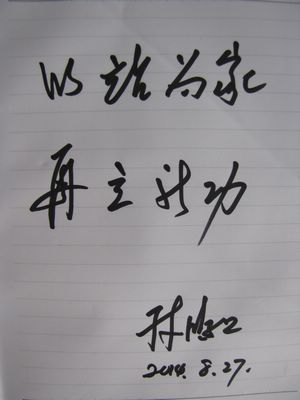 以站为家
再立新功
2014.8.27.